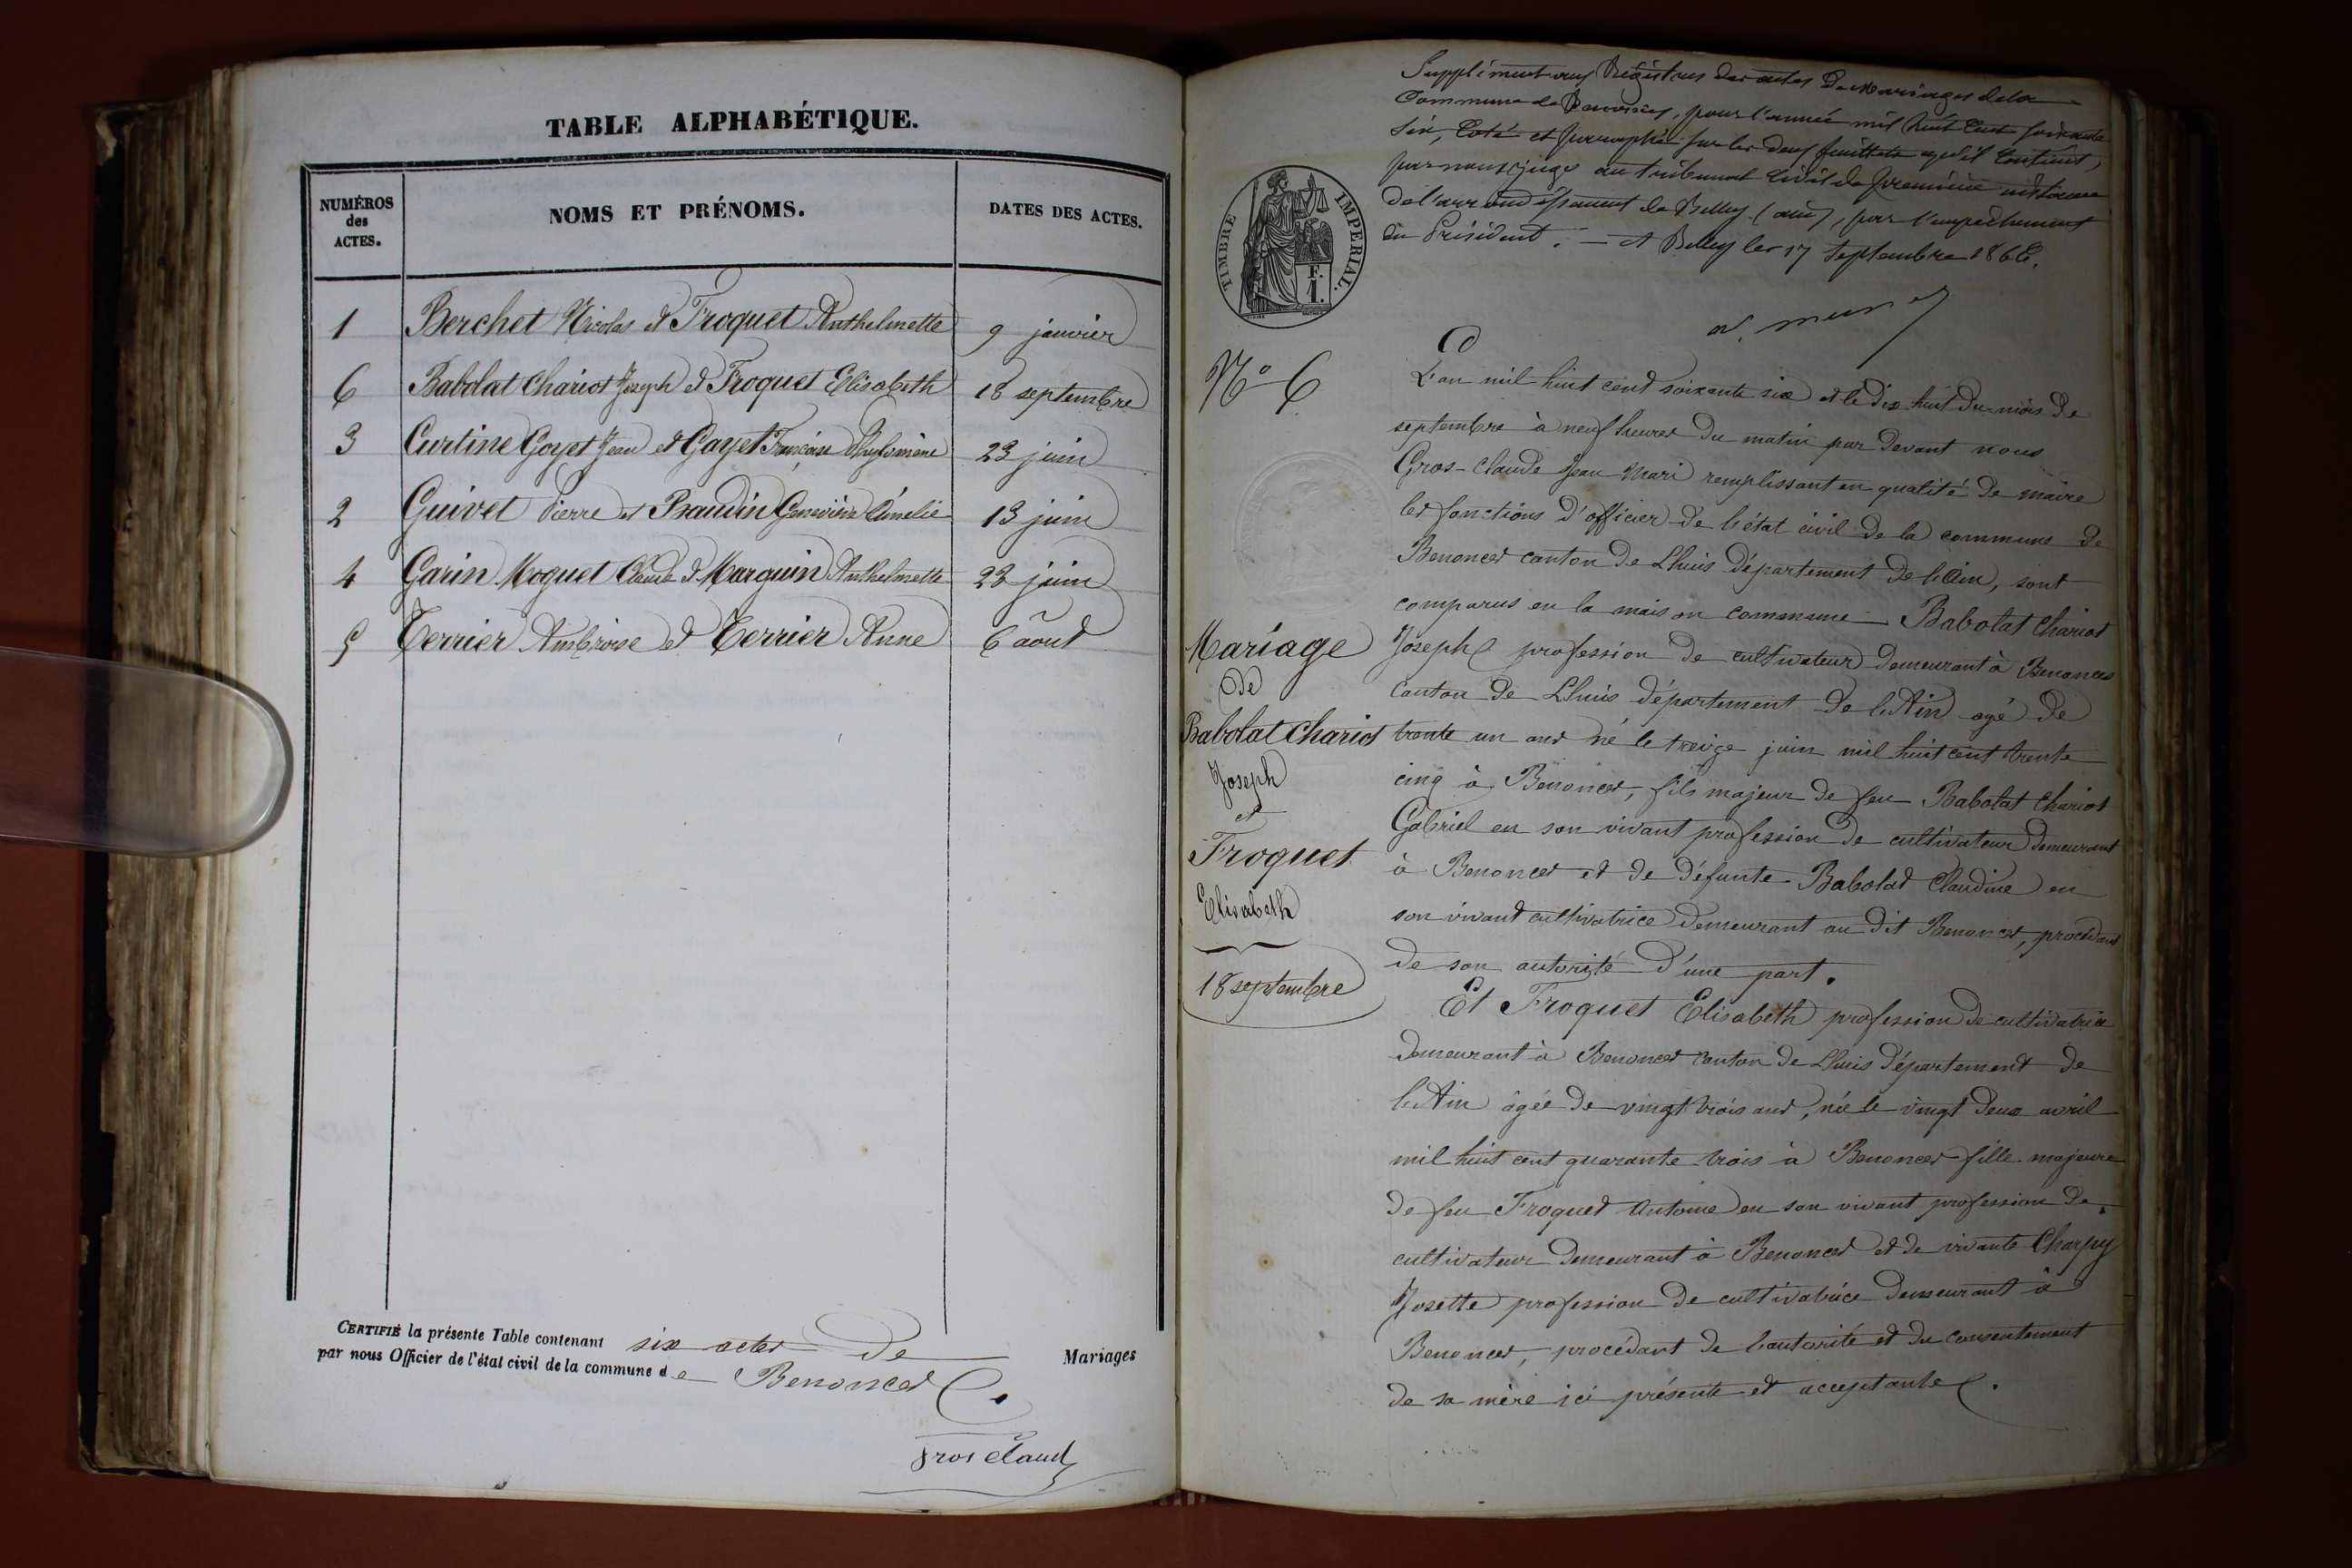 TABLE ALPHABÉTIQUE.
NUMÉROS des ACTES. NOMS ET PRÉNOMS. DATES DES ACTES.
1 Berchet Nicolas et Froquet Anthelmette 9 janvier
6 Babolat Chariot Joseph et Froquet Elisabeth 18 septembre
3 Curtine Goyet Jean et Gayet Françoise 23 juin
2 Guivet Pierre et Baudin Geneviève Amélie 13 juin
4 Garin Moquet Claude et Marguin Anthelmette 23 juin
5 Terrier Ambroise et Terrier Anne 6 août
CERTIFIÉ la présente Table contenant six actes de Mariages
par nous Officier de l'état civil de la commune de Benonces
Gros Claud
Supplément aux Régistres des actes De Mariages de la
Commune de Benonces, pour l'année mil huit Cent soixante
Six, Coté et paraphé sur les deux feuillets qu'il Contient,
par nous juge au tribunal Civil de première instance
de l'arrondissement de Belley (ain), par l'empêchement
du Président. — A Belley les 17 Septembre 1866.
TIMBRE IMPERIAL.
F.
1.
N° 6
L'an mil huit cent soixante six et le dix huit du mois de
septembre à neuf heures du matin par devant nous
Gros-Claude Jean Mari remplissant en qualité de maire
les fonctions d'officier de l'état civil de la commune de
Benonces canton de Lhuis département de l'Ain, sont
comparus en la maison commune Babolat Chariot
Joseph profession de cultivateur demeurant à Benonces
canton de Lhuis département de l'Ain agé de
trente un ans né le treize juin mil huit cent trente
cinq à Benonces, fils majeur de feu Babolat Chariot
Gabriel en son vivant profession de cultivateur demeurant
à Benonces et de défunte Babolat Claudine en
son vivant cultivatrice demeurant au dit Benonces, procédant
de son autorité d'une part.
Mariage
de
Babolat Chariot
Joseph
et
Froquet
Elisabeth
18 septembre
Et Froquet Elisabeth profession de cultivatrice
demeurant à Benonces canton de Lhuis département de
l'Ain âgée de vingt trois ans, née le vingt deux avril
mil huit cent quarante trois à Benonces fille majeure
de feu Froquet Antoine en son vivant profession de
cultivateur demeurant à Benonces et de vivante Charpy
Josette profession de cultivatrice demeurant à
Benonces, procédant de l'autorité et du consentement
de sa mère ici présente et acceptante.